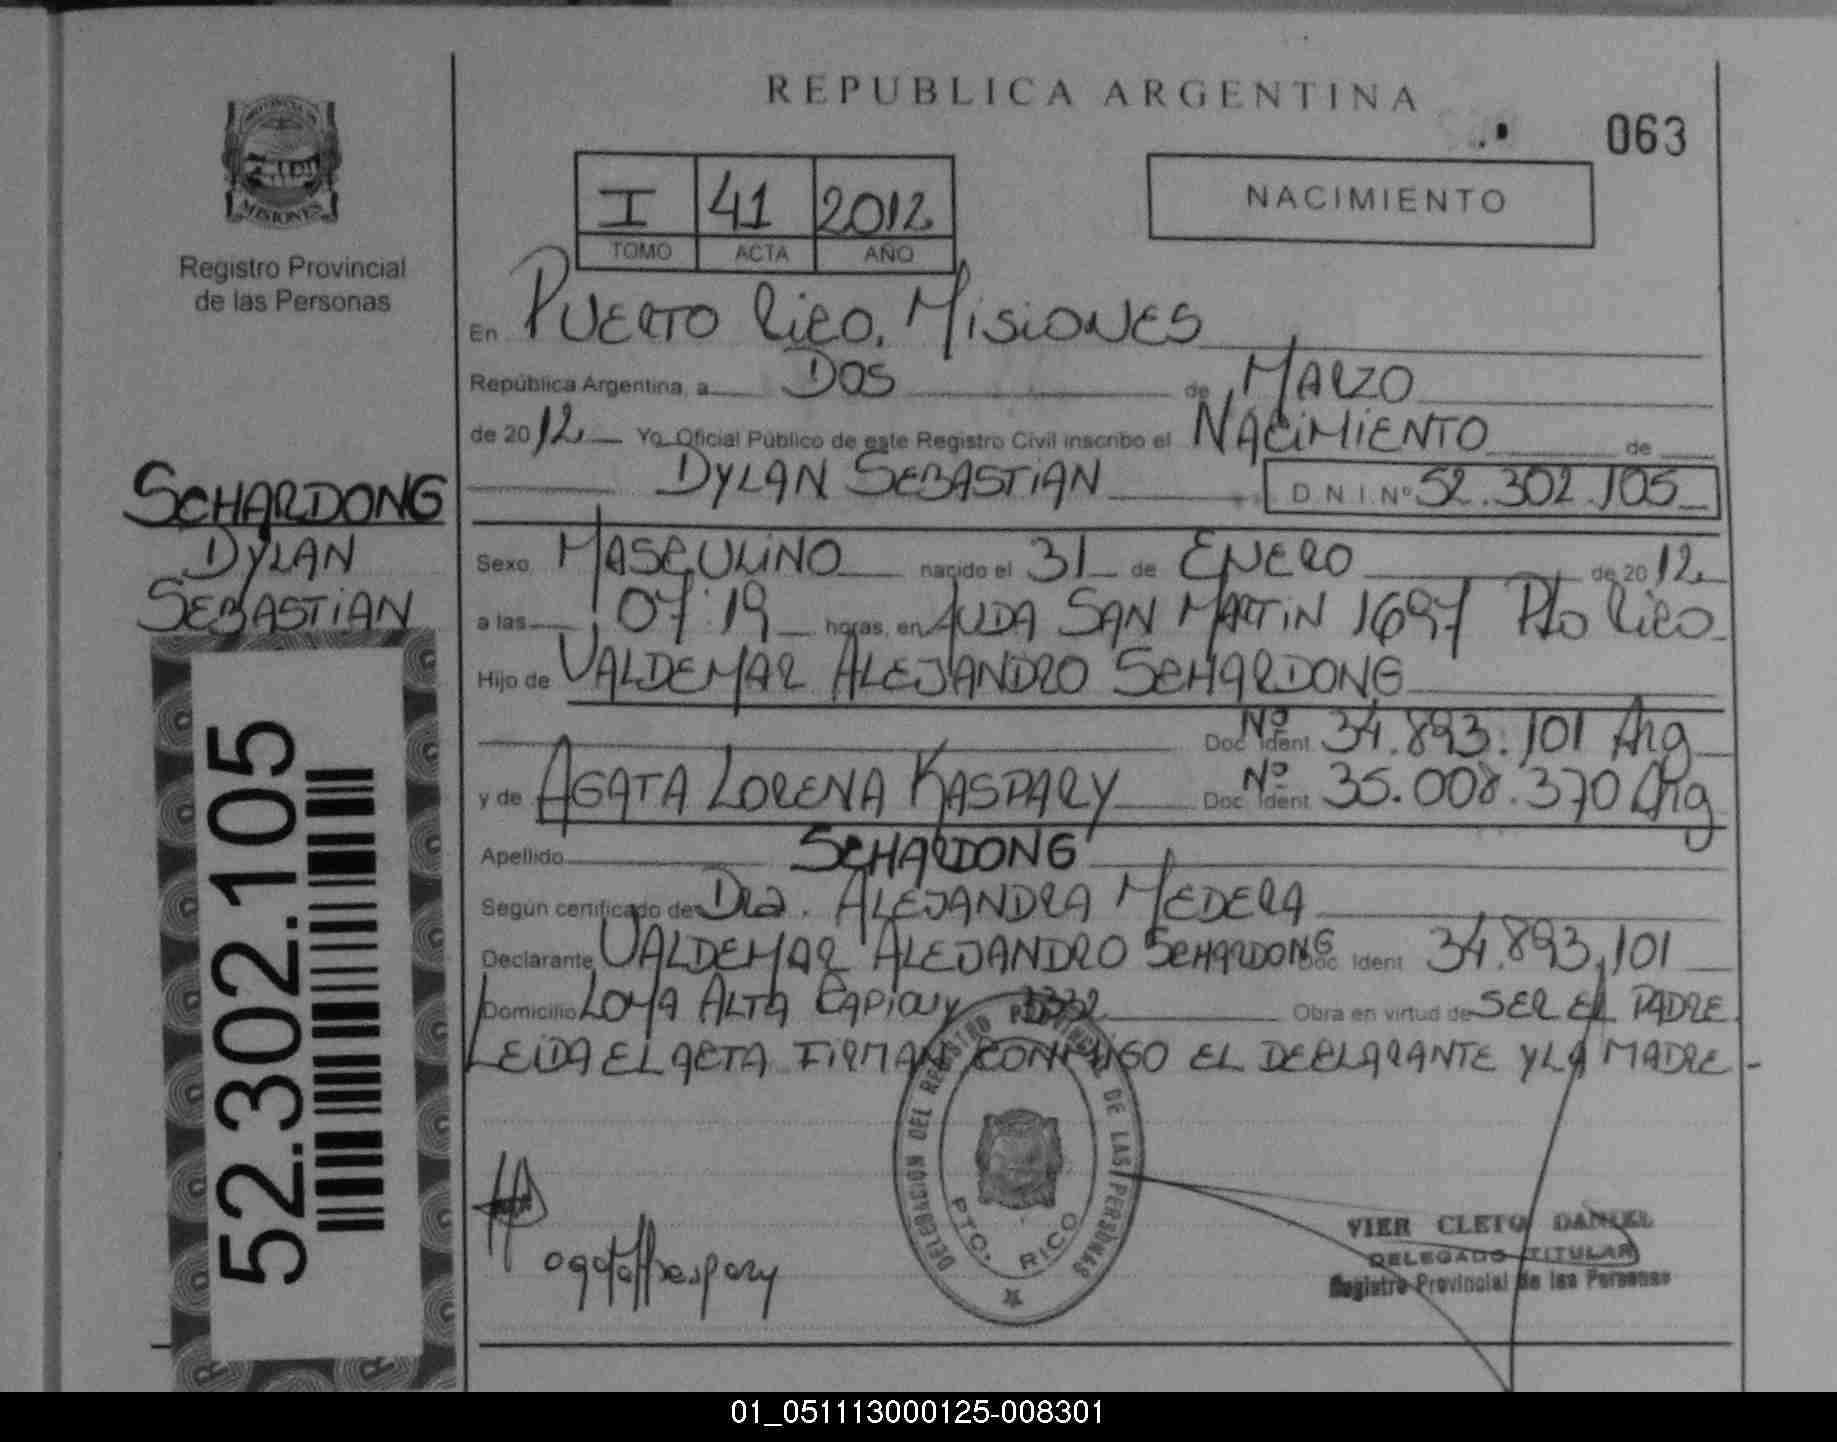 REPUBLICA ARGENTINA
063
PROVINCIA DE
MISIONES
Registro Provincial
de las Personas
I 41 2012
TOMO ACTA AÑO
NACIMIENTO
En PUERTO RICO, MISIONES
República Argentina, a DOS de MARZO
de 2012 Yo Oficial Público de este Registro Civil inscribo el NACIMIENTO de
DYLAN SEBASTIAN D.N.I.Nº 52.302.105
SCHARDONG
DYLAN
SEBASTIAN
52.302.105
Sexo MASCULINO nacido el 31 de ENERO de 2012
a las 07:19 horas, en AVDA SAN MARTIN 1697 Pto RICO
Hijo de VALDEMAR ALEJANDRO SCHARDONG
Doc Ident Nº 34.893.101 Arg
y de AGATA LORENA KASPARY Doc Ident Nº 35.008.370 Arg
Apellido SCHARDONG
Según certificado de Dra. ALEJANDRA MEDERA
Declarante VALDEMAR ALEJANDRO SCHARDONG Doc Ident 34.893.101
Domicilio LOMA ALTA CAPIOVY 3332 Obra en virtud de SER EL PADRE
LEIDA EL ACTA FIRMAN CONMIGO EL DECLARANTE Y LA MADRE -
DELEGACION DEL REGISTRO PROVINCIAL DE LAS PERSONAS
PTO. RICO
agata Kaspary
VIER CLETO DANIEL
DELEGADO TITULAR
Registro Provincial de las Personas
01_051113000125-008301